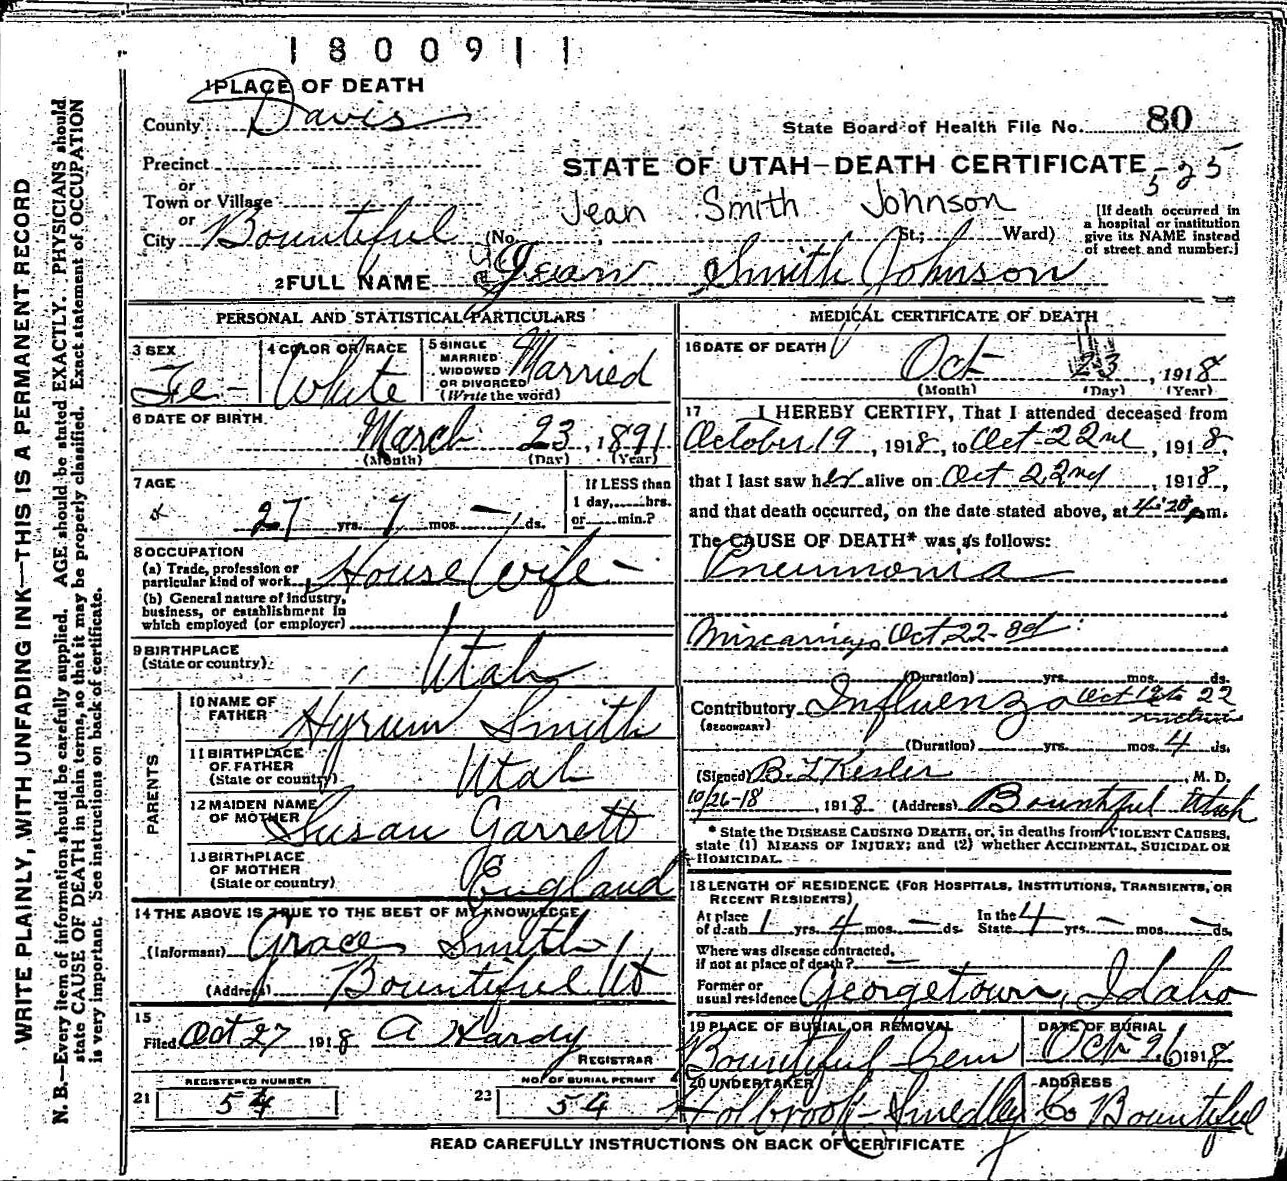 1800911
1 PLACE OF DEATH
County Davis
State Board of Health File No. 80
Precinct
STATE OF UTAH—DEATH CERTIFICATE 525
or
Town or Village
Jean Smith Johnson
or
City Bountiful (No. , St.; Ward)
[If death occurred in
a hospital or institution
give its NAME instead
of street and number.]
2 FULL NAME Jean Smith Johnson
PERSONAL AND STATISTICAL PARTICULARS
3 SEX Fe- 4 COLOR OR RACE White 5 SINGLE MARRIED WIDOWED OR DIVORCED (Write the word) Married
6 DATE OF BIRTH March 23, 1891
(Month) (Day) (Year)
7 AGE 27 yrs. 7 mos. — ds. If LESS than 1 day, hrs. or min.?
8 OCCUPATION
(a) Trade, profession or
particular kind of work House Wife -
(b) General nature of industry,
business, or establishment in
which employed (or employer)
9 BIRTHPLACE
(State or country) Utah
PARENTS
10 NAME OF
FATHER Hyrum Smith
11 BIRTHPLACE
OF FATHER
(State or country) Utah
12 MAIDEN NAME
OF MOTHER Susan Garrett
13 BIRTHPLACE
OF MOTHER
(State or country) England
14 THE ABOVE IS TRUE TO THE BEST OF MY KNOWLEDGE
(Informant) Grace Smith
(Address) Bountiful Ut
15
Filed Oct 27 1918 A Hardy
REGISTRAR
REGISTERED NUMBER
21 54
NO. OF BURIAL PERMIT
22 54
MEDICAL CERTIFICATE OF DEATH
16 DATE OF DEATH
Oct 23, 1918
(Month) (Day) (Year)
17 I HEREBY CERTIFY, That I attended deceased from
October 19, 1918, to Oct 22nd, 1918,
that I last saw her alive on Oct 22nd, 1918,
and that death occurred, on the date stated above, at p.m.
The CAUSE OF DEATH* was as follows:
Pneumonia
Oct 22-
(Duration) yrs. mos. ds.
Contributory Influenza Oct 18 to 22
(SECONDARY)
(Duration) yrs. mos. 4 ds.
(Signed) B. L Kesler, M. D.
10/26-18, 1918 (Address) Bountiful Utah
* State the DISEASE CAUSING DEATH, or, in deaths from VIOLENT CAUSES,
state (1) MEANS OF INJURY; and (2) whether ACCIDENTAL, SUICIDAL OR
HOMICIDAL.
18 LENGTH OF RESIDENCE (FOR HOSPITALS, INSTITUTIONS, TRANSIENTS, OR
RECENT RESIDENTS)
At place of death 1 yrs. 4 mos. — ds. In the State 4 yrs. — mos. — ds.
Where was disease contracted,
if not at place of death? —
Former or
usual residence Georgetown, Idaho
19 PLACE OF BURIAL OR REMOVAL DATE OF BURIAL
Bountiful Cem Oct 26 1918
20 UNDERTAKER ADDRESS
Holbrook-Smedley Co Bountiful
READ CAREFULLY INSTRUCTIONS ON BACK OF CERTIFICATE
WRITE PLAINLY, WITH UNFADING INK—THIS IS A PERMANENT RECORD
N. B.—Every item of information should be carefully supplied. AGE should be stated EXACTLY. PHYSICIANS should
state CAUSE OF DEATH in plain terms, so that it may be properly classified. Exact statement of OCCUPATION
is very important. See instructions on back of certificate.